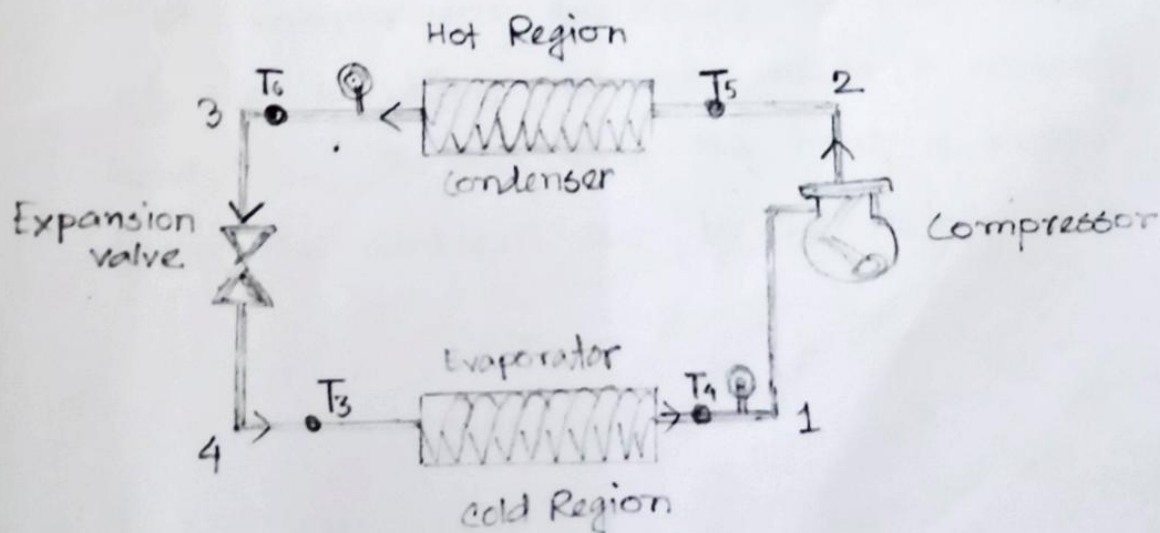 Hot Region
T6
T5
2
3
Condenser
Expansion
valve
Compressor
Evaporator
T3
T4
1
4
Cold Region